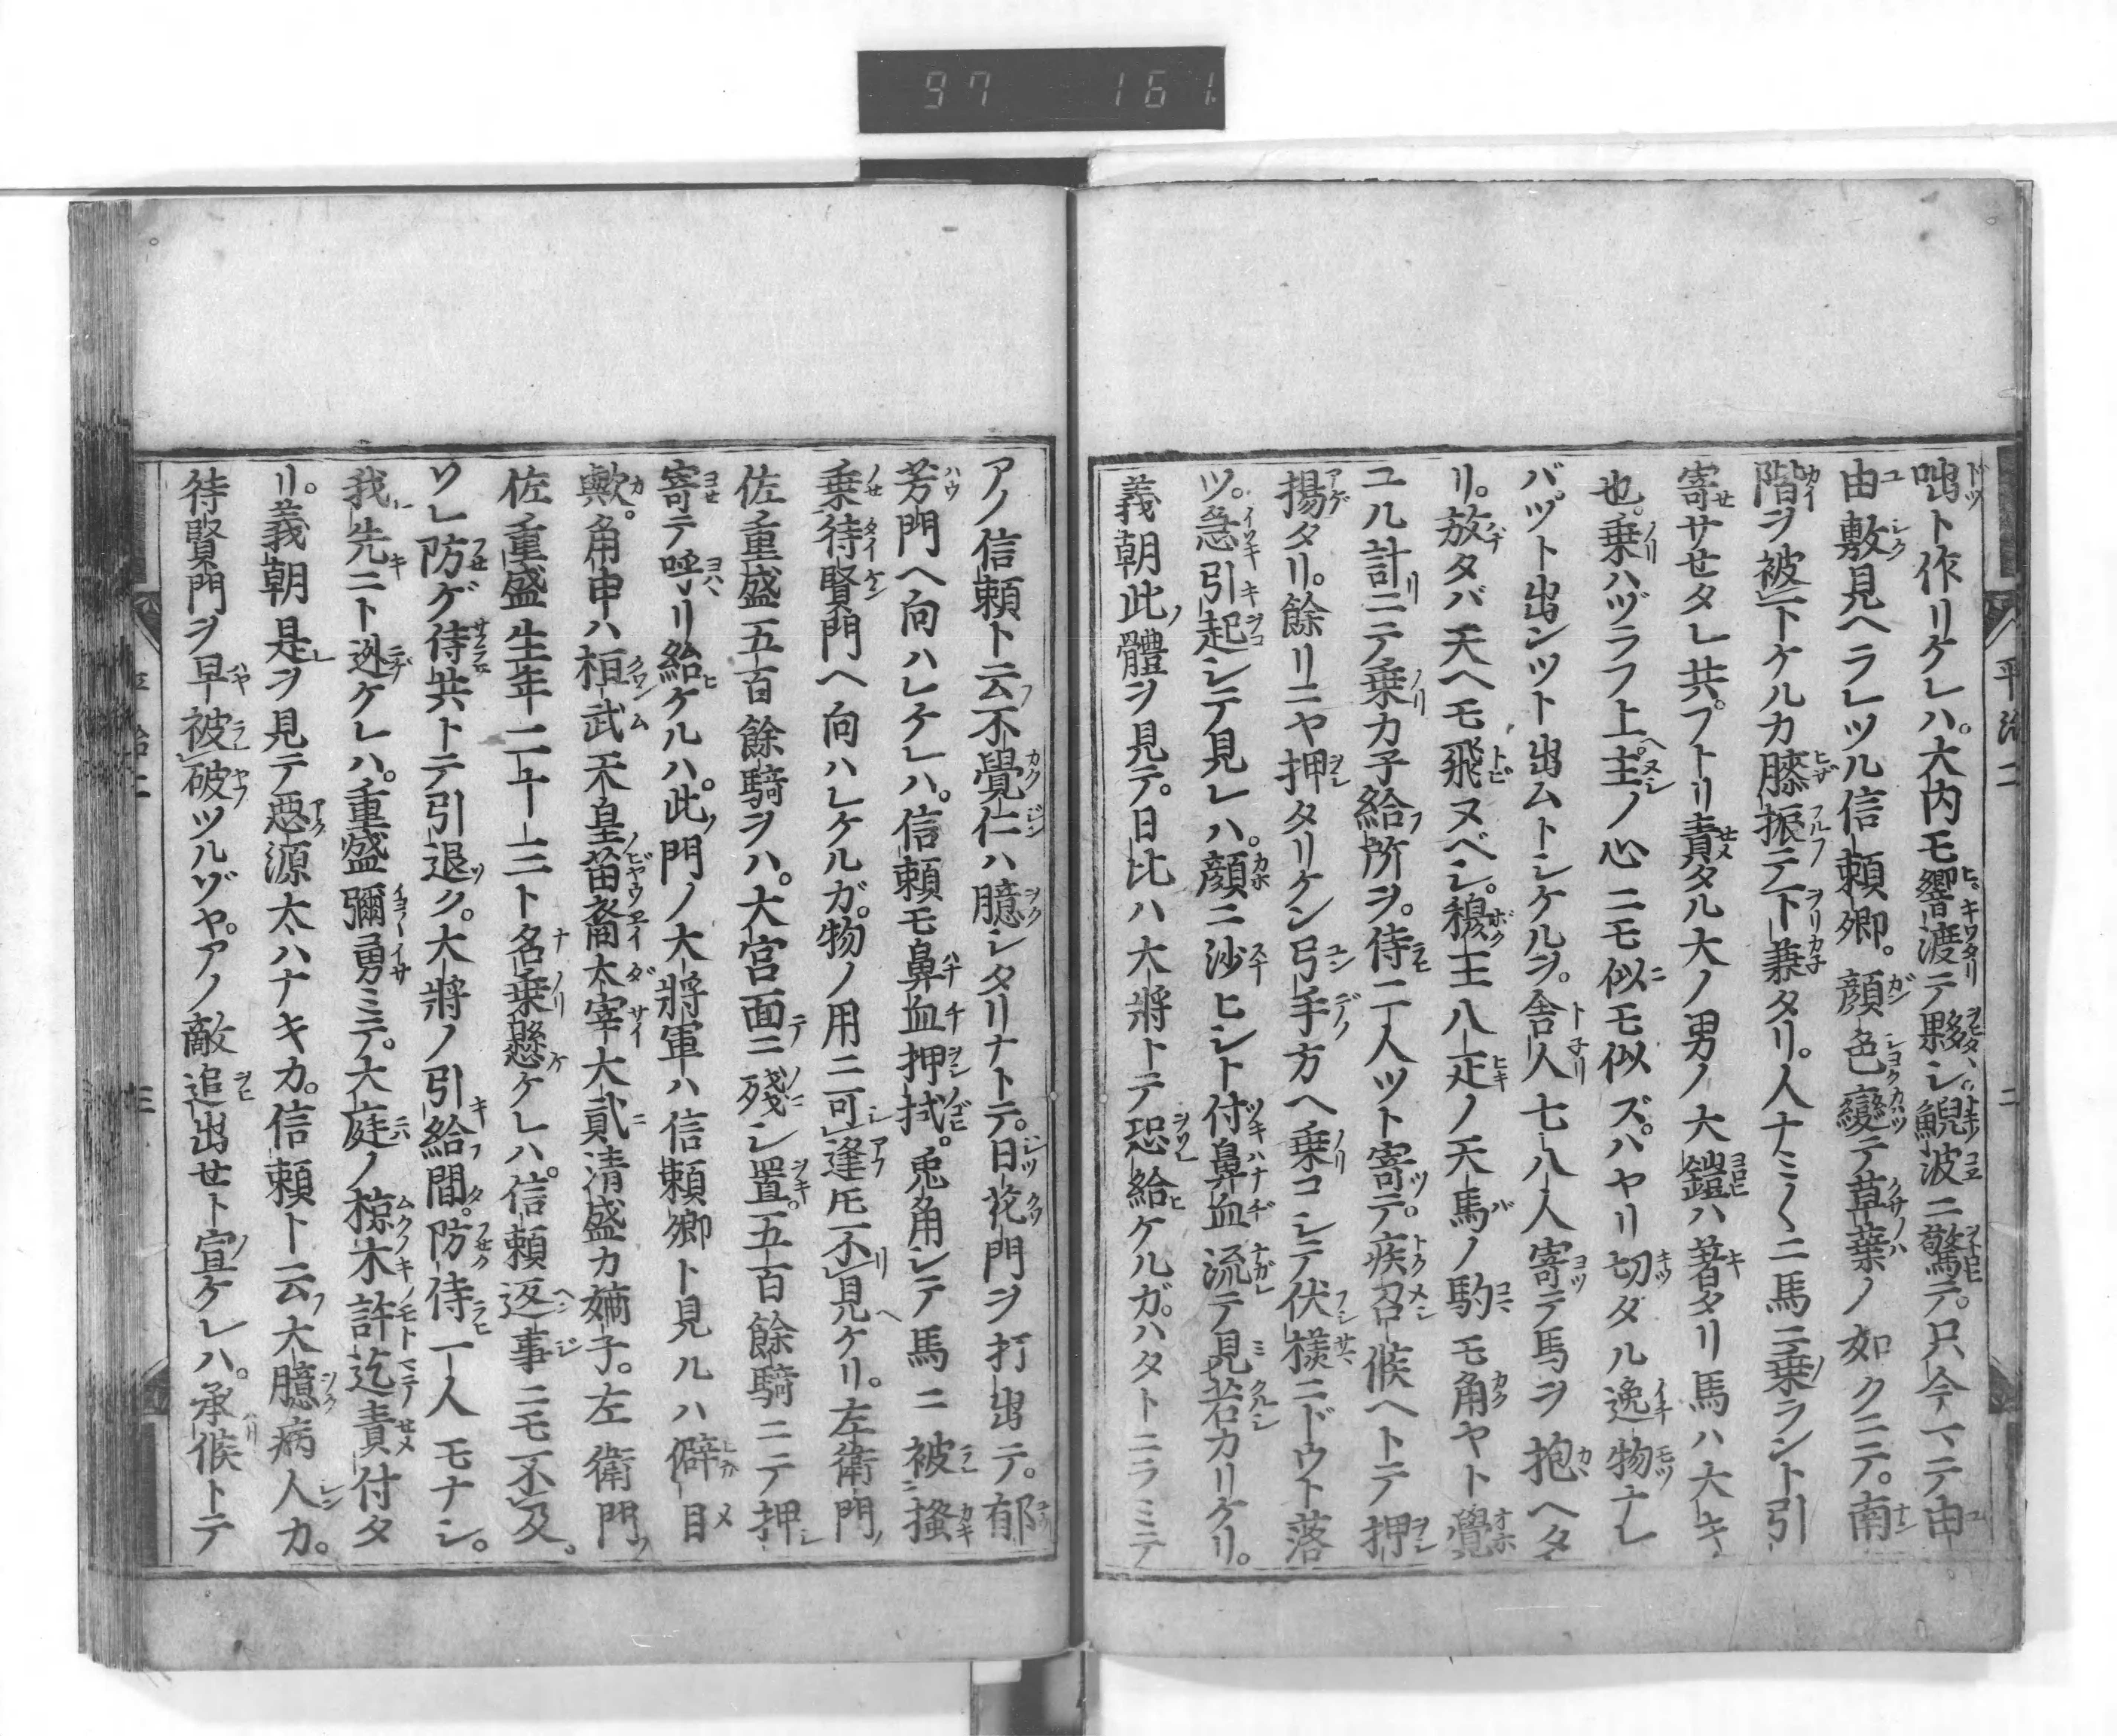 97 161
咄ト作リケレハ。大内モ響渡テ夥シ。鯢波ニ驚テ。只今マテ由
由敷見ヘラレツル信頼卿。顔色變テ草葉ノ如クニテ。南
階ヲ被下ケルカ膝振テ下兼タリ。人ナミ〱ニ馬ニ乗ラント引
寄サセタレ共。フトリ責タル大ノ男ノ大鎧ハ著タリ馬ハ大キ
也。乗ハヅラフ上。主ノ心ニモ似モ似ズ。ハヤリ切タル逸物ナレ
バ。ツト出ンツト出ムトシケルヲ。舎人七八人寄テ馬ヲ抱ヘタ
リ。放タバ天ヘモ飛ヌベシ。穆王八疋ノ天馬ノ駒モ角ヤト覺
ユル計ニテ乗カ子給所ヲ。侍二人ツト寄テ。疾召候ヘトテ押
揚タリ。餘リニヤ押タリケン弓手方ヘ乗コシテ伏様ニドウト落
ツ。急引起シテ見レハ。顔ニ沙ヒシト付鼻血流テ見若カリケリ。
義朝此體ヲ見テ。日比ハ大將トテ恐給ケルガ。ハタトニラミテ
平治二 二
アノ信頼ト云不覺仁ハ臆シタリナトテ。日花門ヲ打出テ。郁
芳門ヘ向ハレケレハ。信頼モ鼻血押拭。兎角シテ馬ニ被掻
乗待賢門ヘ向ハレケルガ。物ノ用ニ可逢トモ不見ケリ。左衛門
佐重盛五百餘騎ヲハ。大宮面ニ殘シ置。五百餘騎ニテ押
寄テ呼リ給ケルハ。此門ノ大將軍ハ信頼卿ト見ルハ僻目
歟。角申ハ桓武天皇苗裔太宰大貳清盛カ嫡子。左衛門
佐重盛生年二十三ト名乗懸ケレハ。信頼返事ニモ不及。
ソレ防ゲ侍共トテ引退ク。大將ノ引給間。防侍一人モナシ。
我先ニト迯ケレハ。重盛彌勇ミテ。大庭ノ椋木許迄責付タ
リ。義朝是ヲ見テ惡源太ハナキカ。信頼ト云大臆病人カ。
待賢門ヲ早被破ツルゾヤ。アノ敵追出セト宣ケレハ。承候トテ